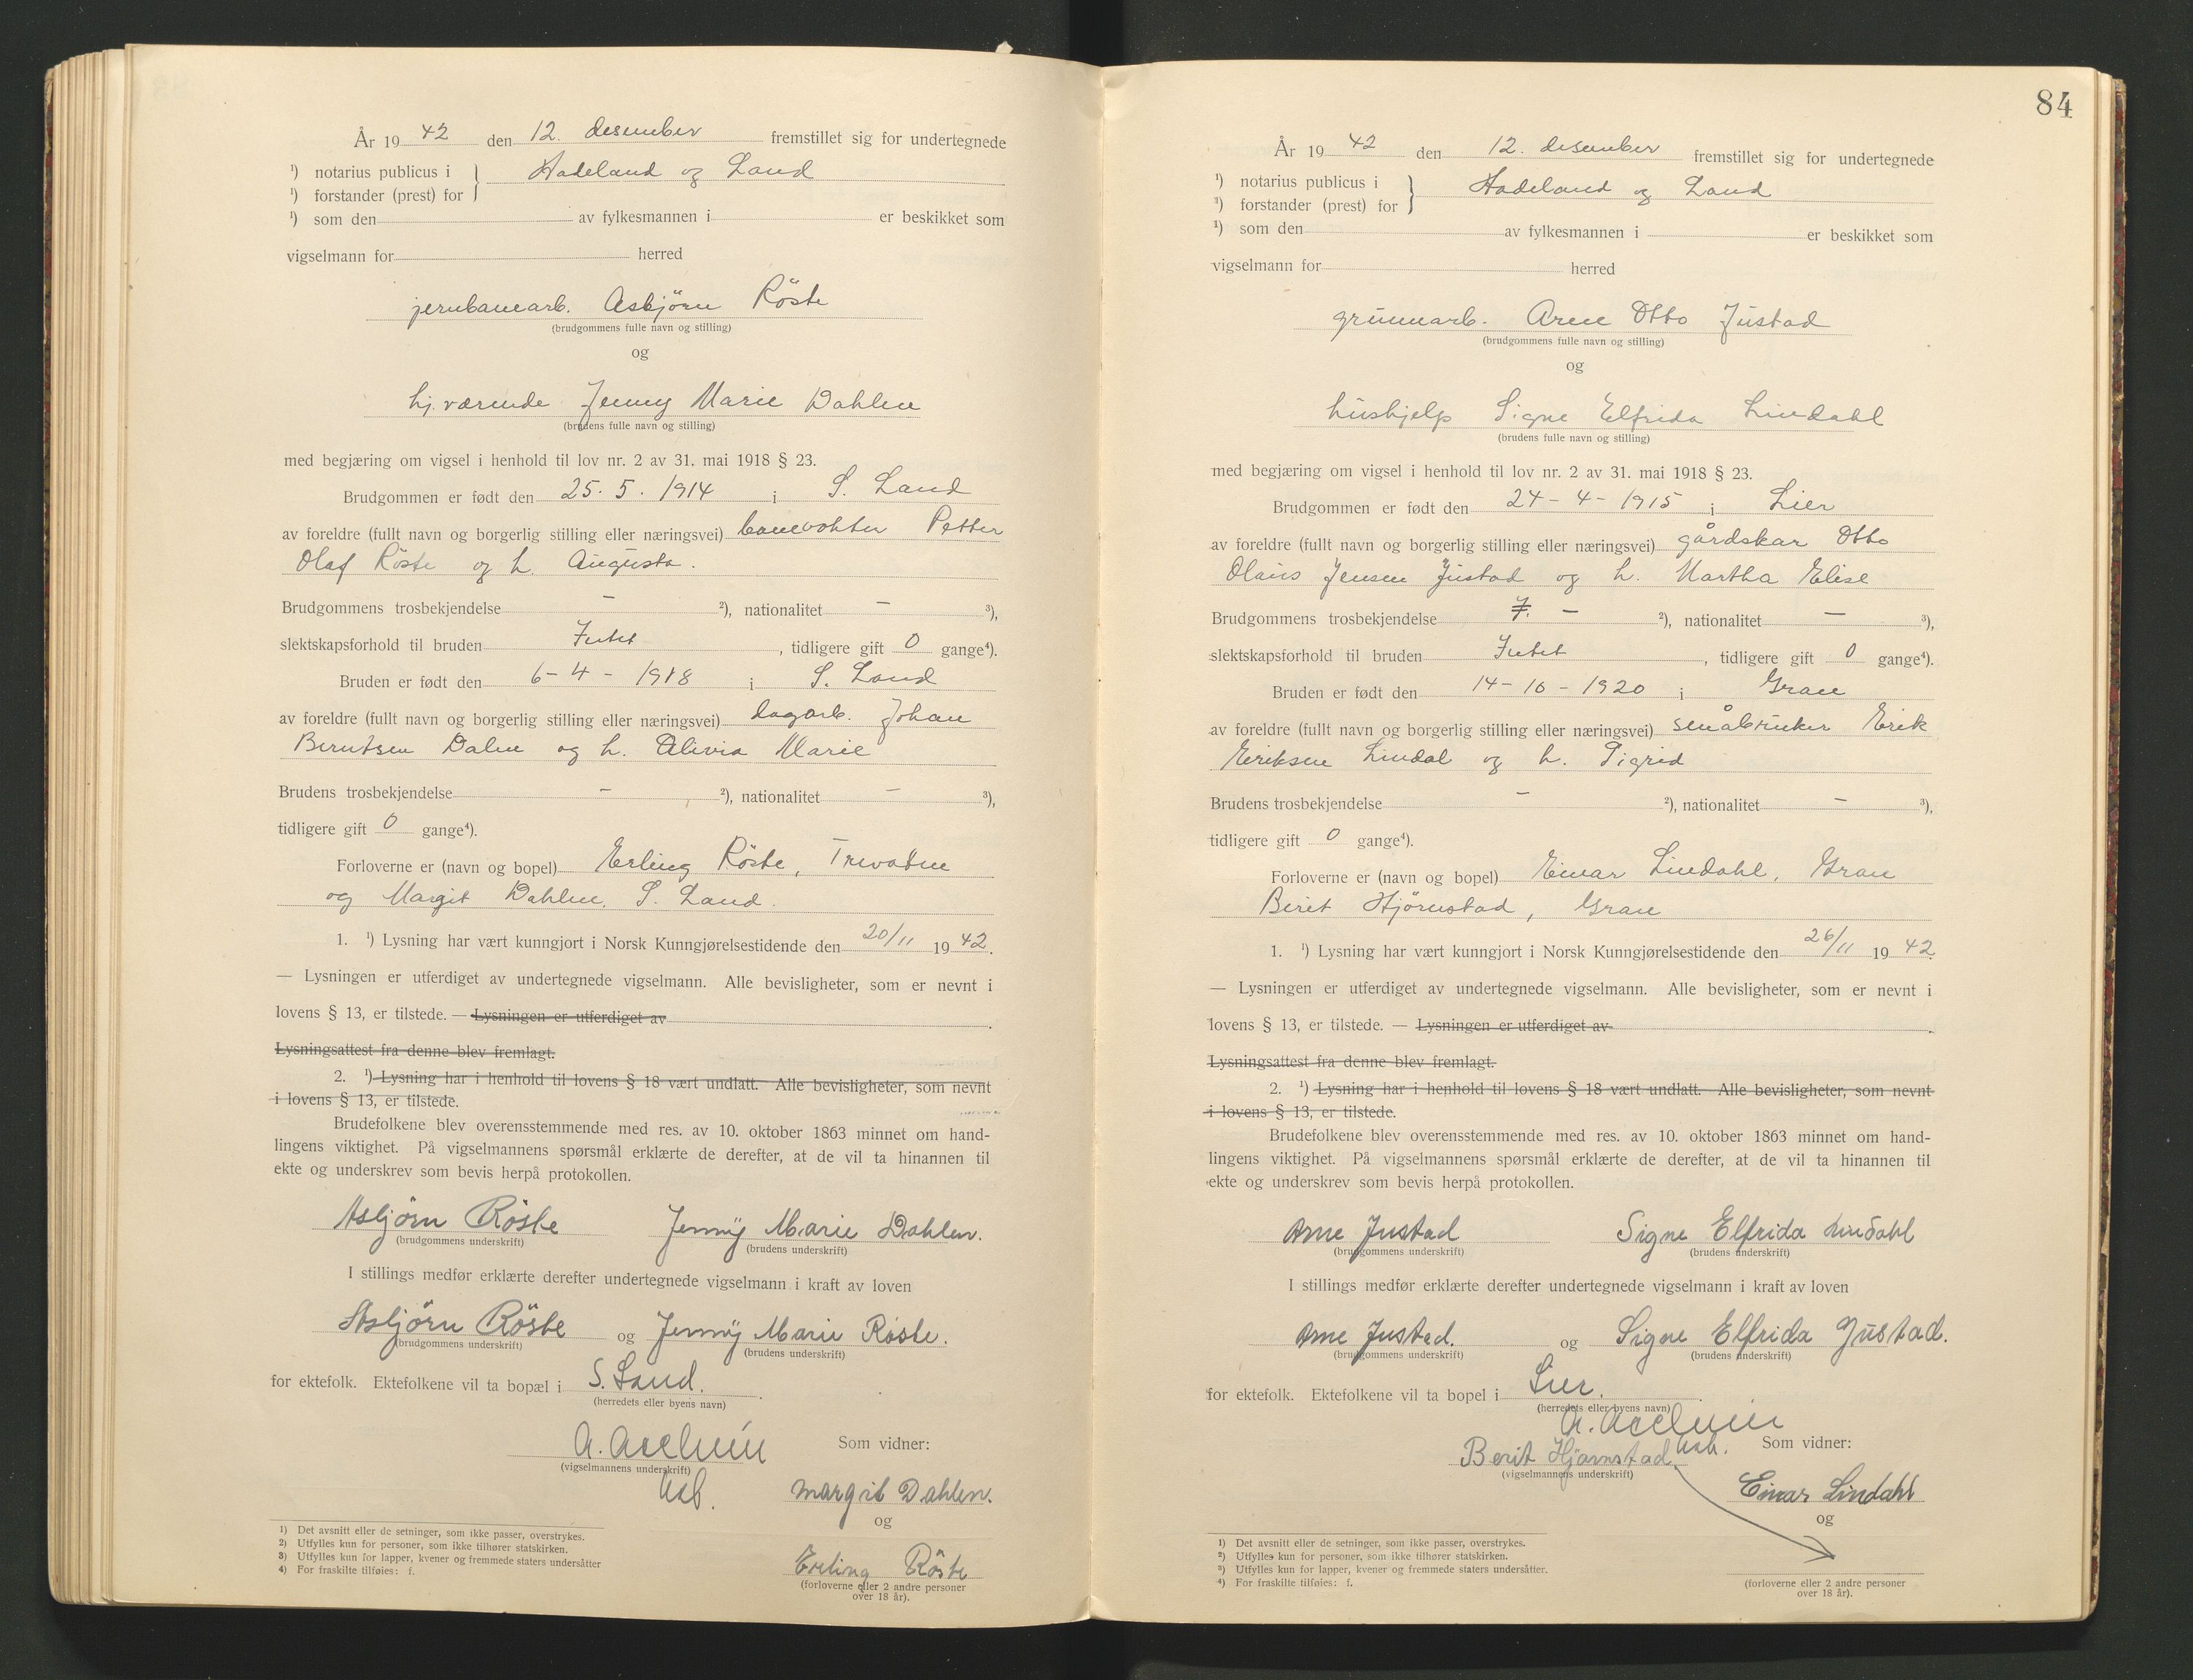 År 19 42 den 12. desember fremstillet sig for undertegnede
¹) notarius publicus i } Hadeland og Land
¹) forstander (prest) for
¹) som den av fylkesmannen i er beskikket som
vigselmann for herred
jernbanearb. Asbjörn Röste
(brudgommens fulle navn og stilling)
og
hj.værende Jenny Marie Dahlen
(brudens fulle navn og stilling)
med begjæring om vigsel i henhold til lov nr. 2 av 31. mai 1918 § 23.
Brudgommen er født den 25. 5. 1914 i S. Land
av foreldre (fullt navn og borgerlig stilling eller næringsvei) banevokter Petter
Olaf Röste og h. Augusta.
Brudgommens trosbekjendelse – ²), nationalitet – ³),
slektskapsforhold til bruden Intet, tidligere gift 0 gange⁴).
Bruden er født den 6 – 4 – 1918 i S. Land
av foreldre (fullt navn og borgerlig stilling eller næringsvei) dagarb. Johan
Berntsen Dalen og h. Olivia Marie
Brudens trosbekjendelse – ²), nationalitet – ³),
tidligere gift 0 gange⁴).
Forloverne er (navn og bopel) Erling Röste, Trevatn
og Margit Dahlen, S. Land.
1. ¹) Lysning har vært kunngjort i Norsk Kunngjørelsestidende den 20/11 19 42.
— Lysningen er utferdiget av undertegnede vigselmann. Alle bevisligheter, som er nevnt i
lovens § 13, er tilstede. — Lysningen er utferdiget av .
Lysningsattest fra denne blev fremlagt.
2. ¹) Lysning har i henhold til lovens § 18 vært undlatt. Alle bevisligheter, som nevnt
i lovens § 13, er tilstede.
Brudefolkene blev overensstemmende med res. av 10. oktober 1863 minnet om hand-
lingens viktighet. På vigselmannens spørsmål erklærte de derefter, at de vil ta hinannen til
ekte og underskrev som bevis herpå protokollen.
Asbjörn Röste Jenny Marie Dahlen.
(brudgommens underskrift) (brudens underskrift)
I stillings medfør erklærte derefter undertegnede vigselmann i kraft av loven
Asbjörn Röste og Jenny Marie Röste.
(brudgommens underskrift) (brudens underskrift)
for ektefolk. Ektefolkene vil ta bopæl i S. Land.
(herredets eller byens navn)
A. Som vidner:
(vigselmannens underskrift)
Margit Dahlen.
og
Erling Röste
(forloverne eller 2 andre personer
over 18 år).
1) Det avsnitt eller de setninger, som ikke passer, overstrykes.
2) Utfylles kun for personer, som ikke tilhører statskirken.
3) Utfylles kun for lapper, kvener og fremmede staters undersåtter
4) For fraskilte tilføies: f.
84
År 19 42 den 12. desember fremstillet sig for undertegnede
¹) notarius publicus i } Hadeland og Land
¹) forstander (prest) for
¹) som den av fylkesmannen i er beskikket som
vigselmann for herred
grünnarb. Arne Otto Justad
(brudgommens fulle navn og stilling)
og
hushjelp Signe Elfrida Lindahl
(brudens fulle navn og stilling)
med begjæring om vigsel i henhold til lov nr. 2 av 31. mai 1918 § 23.
Brudgommen er født den 24 – 4 – 1915 i Lier
av foreldre (fullt navn og borgerlig stilling eller næringsvei) gårdskar Otto
Olaus Jensen Justad og h. Martha Elise
Brudgommens trosbekjendelse – ²), nationalitet – ³),
slektskapsforhold til bruden Intet, tidligere gift 0 gange⁴).
Bruden er født den 14 – 10 – 1920 i Gran
av foreldre (fullt navn og borgerlig stilling eller næringsvei) småbruker Erik
Eriksen Lindal og h. Sigrid
Brudens trosbekjendelse – ²), nationalitet – ³),
tidligere gift 0 gange⁴).
Forloverne er (navn og bopel) Einar Lindahl, Gran
Berit Hjörnstad, Gran
1. ¹) Lysning har vært kunngjort i Norsk Kunngjørelsestidende den 26/11 19 42.
— Lysningen er utferdiget av undertegnede vigselmann. Alle bevisligheter, som er nevnt i
lovens § 13, er tilstede. — Lysningen er utferdiget av .
Lysningsattest fra denne blev fremlagt.
2. ¹) Lysning har i henhold til lovens § 18 vært undlatt. Alle bevisligheter, som nevnt
i lovens § 13, er tilstede.
Brudefolkene blev overensstemmende med res. av 10. oktober 1863 minnet om hand-
lingens viktighet. På vigselmannens spørsmål erklærte de derefter, at de vil ta hinannen til
ekte og underskrev som bevis herpå protokollen.
Arne Justad Signe Elfrida Lindahl
(brudgommens underskrift) (brudens underskrift)
I stillings medfør erklærte derefter undertegnede vigselmann i kraft av loven
Arne Justad. og Signe Elfrida Justad.
(brudgommens underskrift) (brudens underskrift)
for ektefolk. Ektefolkene vil ta bopel i Lier.
(herredets eller byens navn)
A.
Berit Hjørnstad Som vidner:
(vigselmannens underskrift)
Einar Lindahl
og
(forloverne eller 2 andre personer
over 18 år).
¹) Det avsnitt eller de setninger, som ikke passer, overstrykes.
²) Utfylles kun for personer, som ikke tilhører statskirken.
³) Utfylles kun for lapper, kvener og fremmede staters undersåtter.
⁴) For fraskilte tilføies: f.